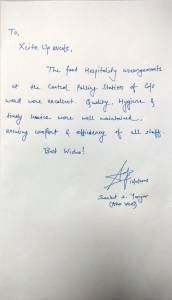 To,
Xcite Upevents,
The food Hospitality arrangements
at the Central Polling Station of
ward were excellent. Quality, Hygiene &
timely were well maintained,
ensuring comfort & efficiency of all staff.
Best Wishes!